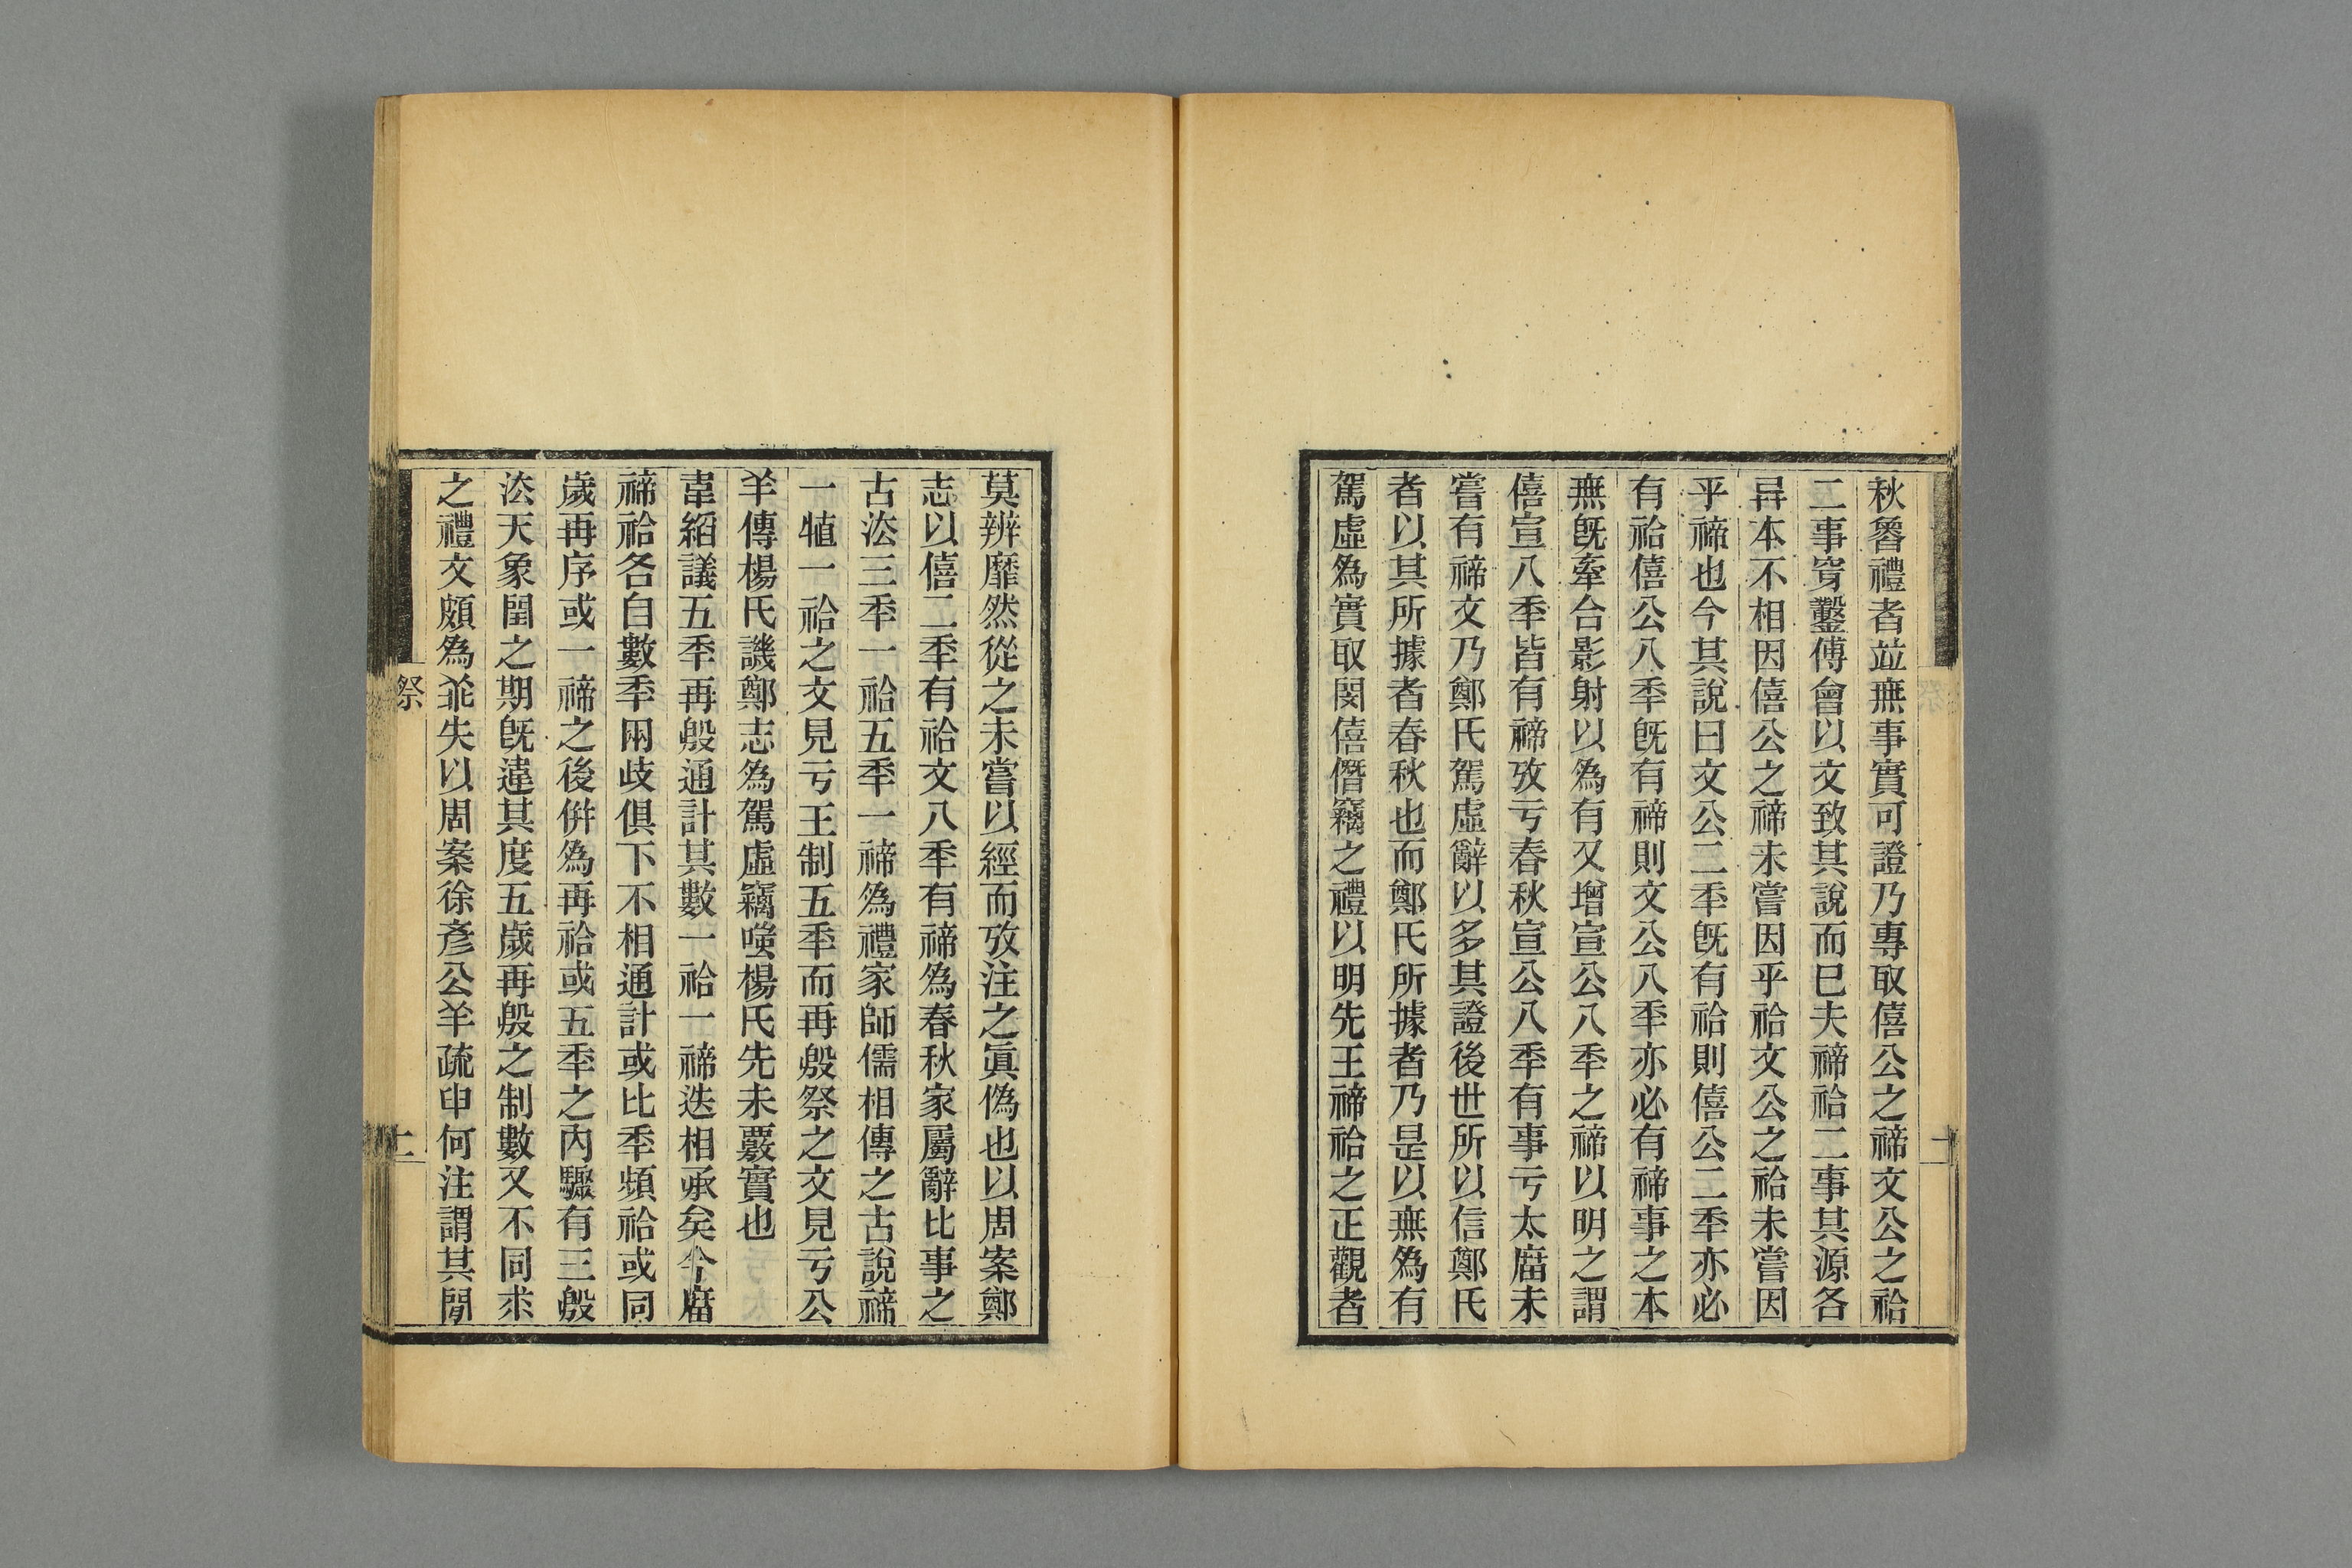 秋魯禮者竝無事實可證乃專取僖公之禘文公之祫
二事穿鑿傅會以文致其說而巳夫禘祫二事其源各
异本不相因僖公之禘未嘗因乎祫文公之祫未嘗因
乎禘也今其說曰文公二秊旣有祫則僖公二秊亦必
有祫僖公八秊旣有禘則文公八秊亦必有禘事之本
無旣牽合影射以爲有又增宣公八秊之禘以明之謂
僖宣八秊皆有禘攷亏春秋宣公八秊有事亏太庿未
嘗有禘文乃鄭氏駕虛辭以多其證後世所以信鄭氏
者以其所據者春秋也而鄭氏所據者乃是以無爲有
駕虛爲實取閔僖僭竊之禮以明先王禘祫之正觀者
莫辨靡然從之未嘗以經而攷注之眞僞也以周案鄭
志以僖二秊有祫文八秊有禘爲春秋家屬辭比事之
古㳒三秊一祫五秊一禘爲禮家師儒相傳之古說禘
一犆一祫之文見亏王制五秊而再殷祭之文見亏公
羊傳楊氏譏鄭志爲駕虛竊嗤楊氏先未覈實也
韋縚議五秊再殷通計其數一祫一禘迭相承矣今庿
禘祫各自數秊兩歧俱下不相通計或比秊頻祫或同
歲再序或一禘之後倂爲再祫或五秊之內驟有三殷
㳒天象閏之期旣違其度五歲再殷之制數又不同求
之禮文頗爲乖失以周案徐彥公羊疏申何注謂其閒
祭
二